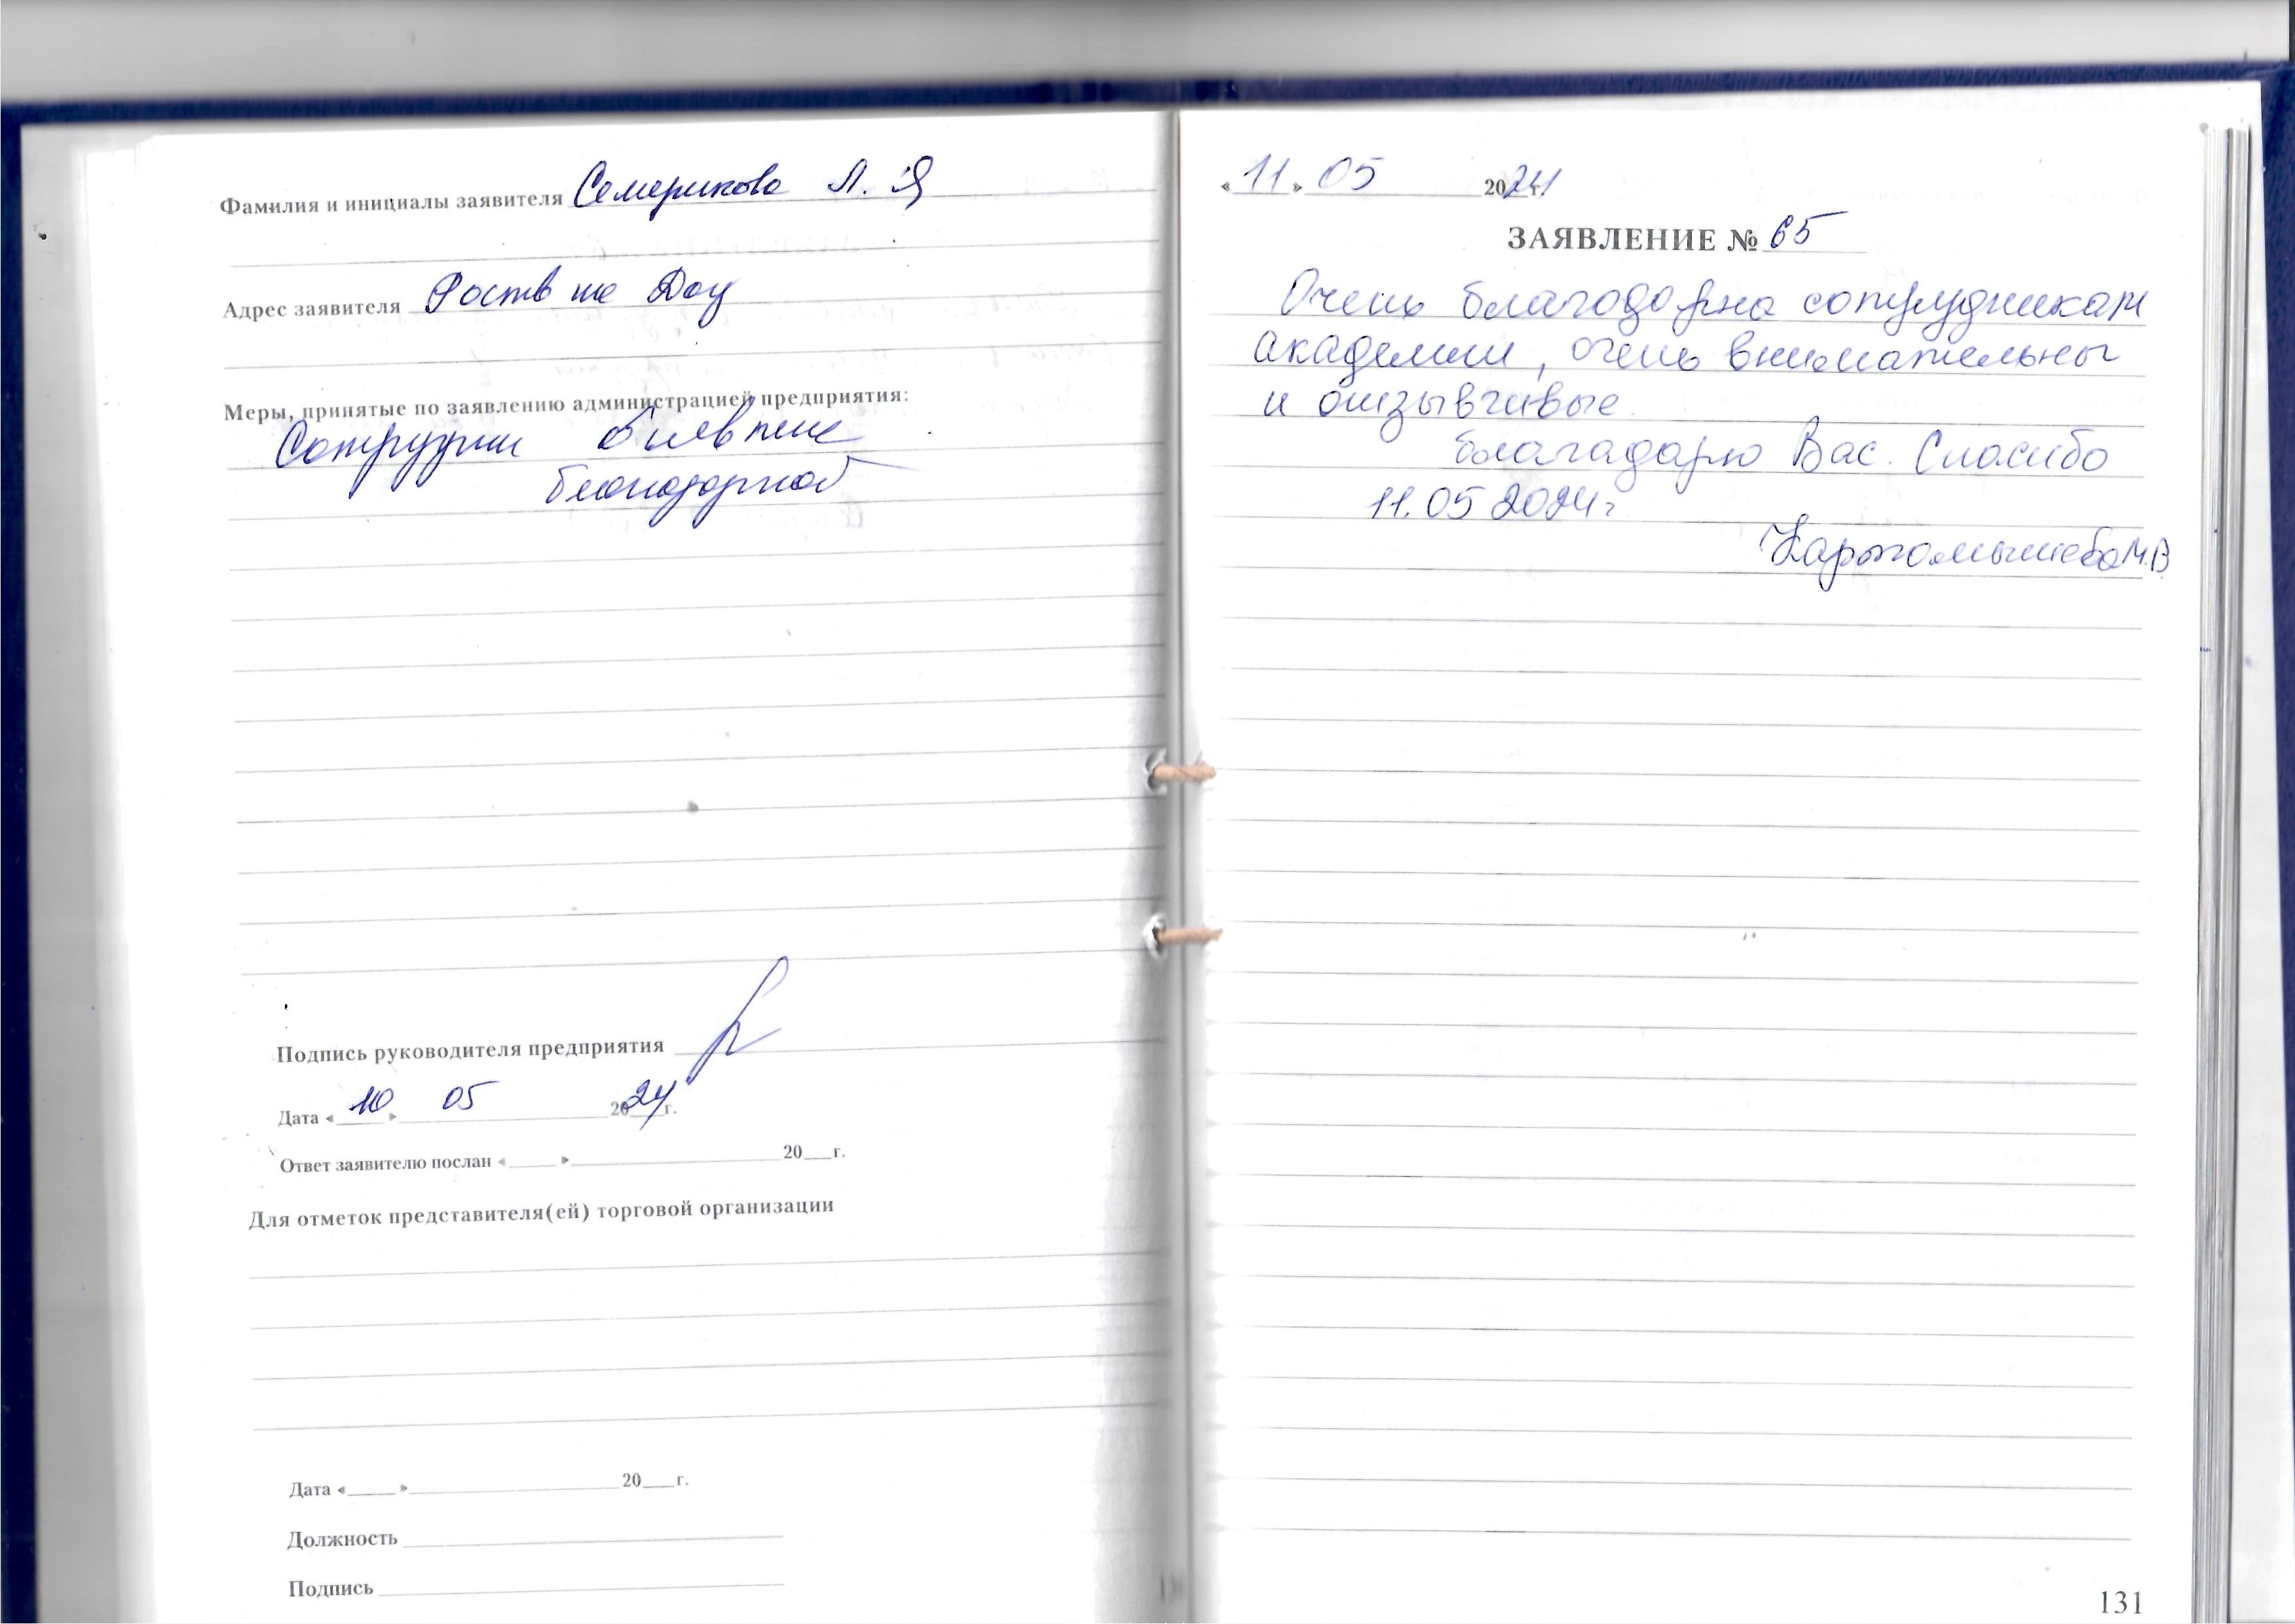 Фамилия и инициалы заявителя Семерикова Л. Я
Адрес заявителя Роств на Дону
Меры, принятые по заявлению администрацией предприятия:
Сотрудни
Подпись руководителя предприятия
Дата « 10 » 05 2024 г.
Ответ заявителю послан « » 20 г.
Для отметок представителя(ей) торговой организации
Дата « » 20 г.
Должность
Подпись
« 11 » 05 2024 г.
ЗАЯВЛЕНИЕ № 65
Очень благодарна сотрудникам
академии, очень внимательны
и отзывчивые
благадарю Вас. Спасибо
11.05 2024 г
Картомышева М.В
131